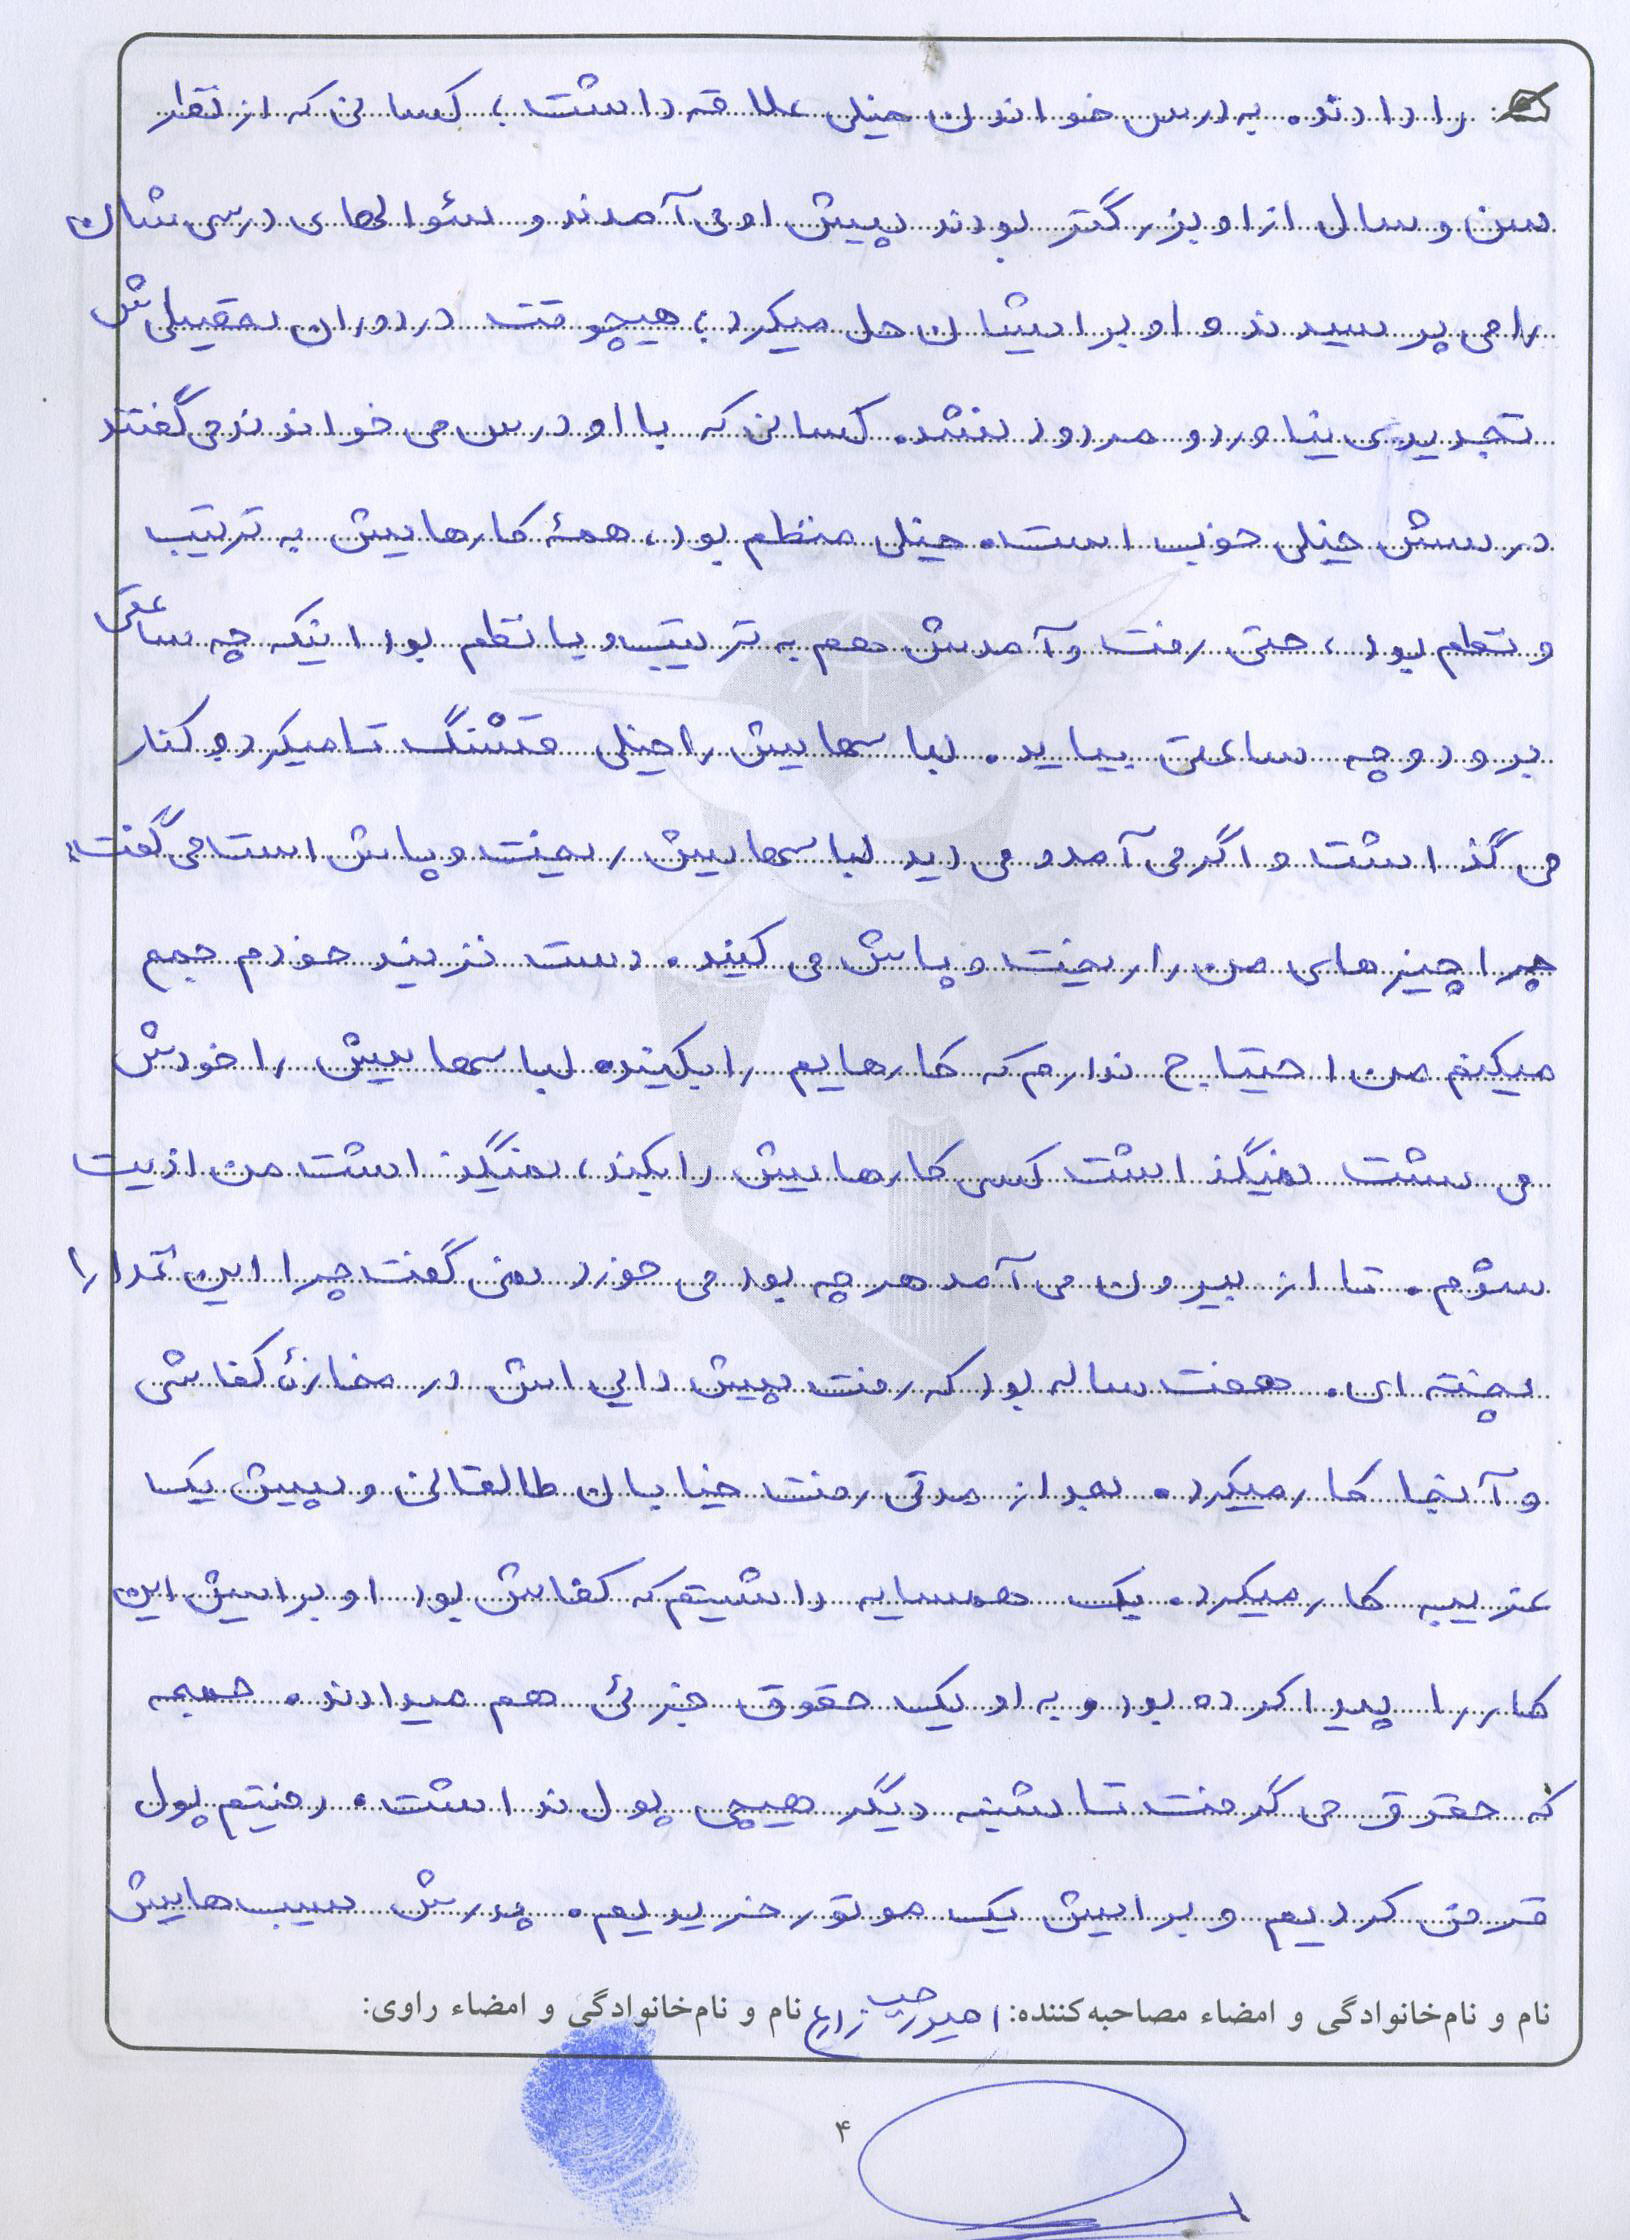 را دادند. به درس خواندن خیلی علاقه داشت، کسانی که از نظر
سن و سال از او بزرگتر بودند پیش او می آمدند و سئوالهای درسی شان
را می پرسیدند و او برایشان حل میکرد، هیچوقت در دوران تحصیلی اش
تجدیدی نیاورد و مردود نشد. کسانی که با او درس می خواندند می گفتند
درسش خیلی خوب است. خیلی منظم بود، همهٔ کارهایش به ترتیب
و نظم بود، حتی رفت و آمدش هم به ترتیب و با نظم بود اینکه چه ساعتی
برود و چه ساعتی بیاید. لباسهایش را خیلی قَشْنگ تا میکرد و کنار
می گذاشت و اگر می آمد و می دید لباسهایش ریخت و پاش است می گفت:
چرا چیزهای من را ریخت و پاش می کنید. دست نزنید خودم جمع
میکنم من احتیاج ندارم که کارهایم را بکنید. لباسهایش را خودش
می شست نمیگذاشت کسی کارهایش را بکند، نمیگذاشت من اذیت
شوم. تا از بیرون می آمد هر چه بود می خورد نمی گفت چرا این غذا را
پخته ای. هفت ساله بود که رفت پیش دایی اش در مغازهٔ کفاشی
و آنجا کار میکرد. بعد از مدتی رفت خیابان طالقانی و پیش یک
غریبه کار میکرد. یک همسایه داشتیم که کفاش بود او برایش این
کار را پیدا کرده بود و به او یک حقوق جزئی هم میدادند. جمعه
که حقوق می گرفت تا شنبه دیگر هیچی پول نداشت. رفتیم پول
قرض کردیم و برایش یک موتور خریدیم. پدرش سیب هایش
نام و نام‌خانوادگی و امضاء مصاحبه‌کننده: زارع نام و نام‌خانوادگی و امضاء راوی:
۴